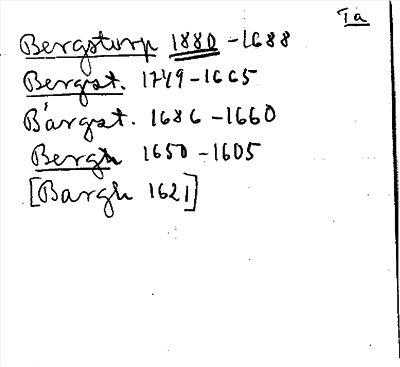 Ta
Bergstorp 1880-1688
Bergst. 1749-1665
Bärgst. 1686-1660
Bergh 1650-1605
[Bargh 1621]